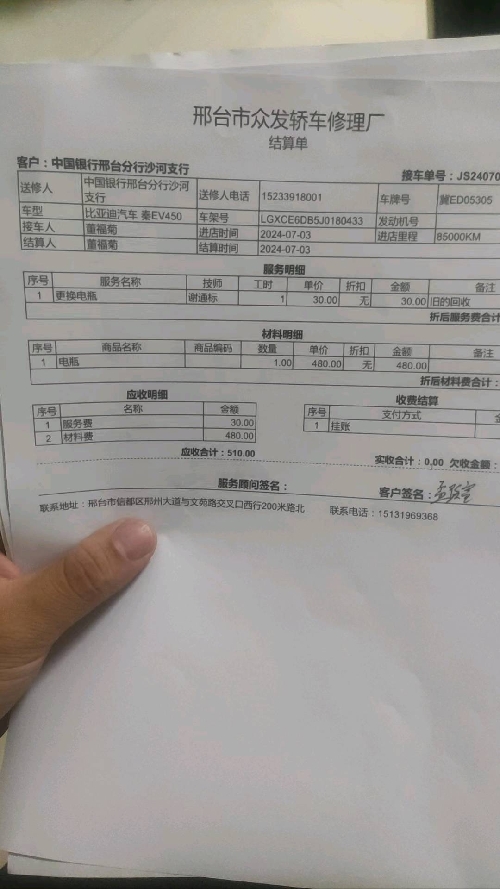 邢台市众发轿车修理厂
结算单
客户：中国银行邢台分行沙河支行 接车单号：JS24070
送修人 中国银行邢台分行沙河支行 送修人电话 15233918001 车牌号 冀ED05305
车型 比亚迪汽车 秦EV450 车架号 LGXCE6DB5J0180433 发动机号
接车人 董福菊 进店时间 2024-07-03 进店里程 85000KM
结算人 董福菊 结算时间 2024-07-03
服务明细
序号 服务名称 技师 工时 单价 折扣 金额 备注
1 更换电瓶 谢通标 1 30.00 无 30.00 旧的回收
折后服务费合计
材料明细
序号 商品名称 商品编码 数量 单价 折扣 金额 备注
1 电瓶 1.00 480.00 无 480.00
折后材料费合计：
应收明细 收费结算
序号 名称 金额 序号 支付方式
1 服务费 30.00 1 挂账
2 材料费 480.00
应收合计：510.00 实收合计：0.00 欠收金额：
服务顾问签名： 客户签名：
联系地址：邢台市信都区邢州大道与文苑路交叉口西行200米路北 联系电话：15131969368